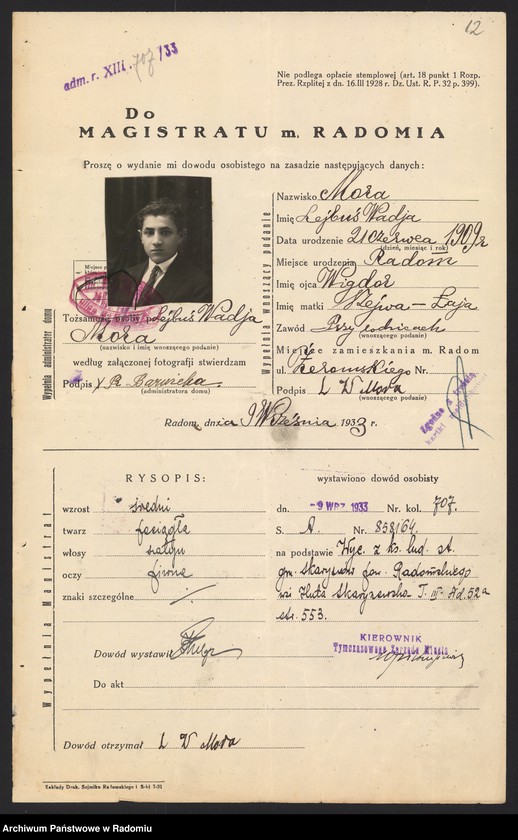 12
adm. r. XIII. 707/33
Nie podlega opłacie stemplowej (art. 18 punkt 1 Rozp.
Prez. Rzplitej z dn. 16.III 1928 r. Dz. Ust. R. P. 32 p. 399).
Do
MAGISTRATU m. RADOMIA
Proszę o wydanie mi dowodu osobistego na zasadzie następujących danych:
Wypełnia administrator domu
Tożsamość osoby p. Lejbuś Wadja
Mora
(nazwisko i imię wnoszącego podanie)
według załączonej fotografji stwierdzam
Podpis
(administratora domu)
Wypełnia wnoszący podanie
Nazwisko Mora
Imię Lejbuś Wadja
Data urodzenie 21 czerwca 1909 r
(dzień, miesiąc i rok)
Miejsce urodzenia Radom
Imię ojca Wigdor
Imię matki Łaja
Zawód Przy rodzicach
(wnoszącego podanie)
Miejsce zamieszkania m. Radom
ul. Żeromskiego Nr.
Podpis L W Mora
(wnoszącego podanie)
Radom, dnia 9 Września 1933 r.
Wypełnia Magistrat
RYSOPIS:
wzrost średni
twarz
włosy szatyn
oczy piwne
znaki szczególne
wystawiono dowód osobisty
dn. -9 WRZ. 1933 Nr. kol. 707.
S. A. Nr. 858/64.
na podstawie Wyc. z ks. lud. st.
gm. Skaryszew pow. Radomskiego
wś Huta Skaryszewska T. III Ad. 52a
str. 553.
KIEROWNIK
Tymczasowego Zarządu Miasta
Dowód wystawił
Do akt
Dowód otrzymał L W Mora
Zakłady Druk. Sejmiku Radomskiego
Archiwum Państwowe w Radomiu